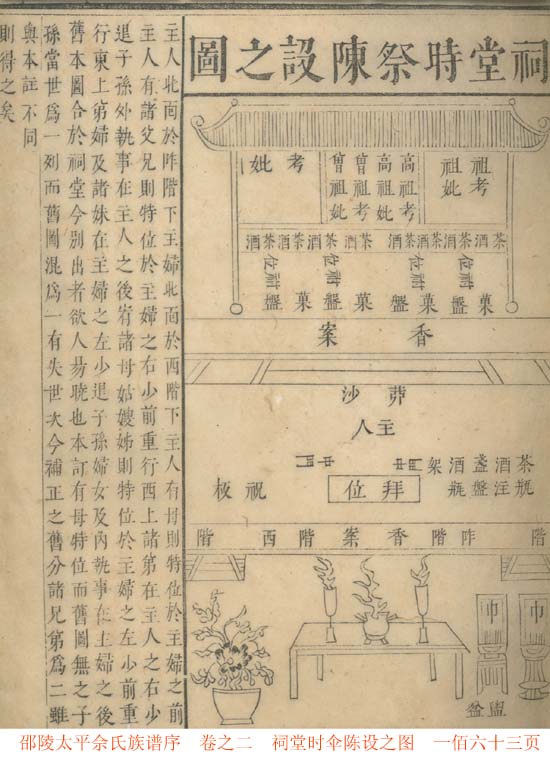 祠堂時祭陳設之圖
祖考
祖妣
高祖考
高祖妣
曾祖考
曾祖妣
考
妣
茶酒茶酒茶酒茶酒茶酒茶酒茶酒茶酒
祔位
祔位
祔位
祔位
菓盤菓盤菓盤菓盤
香案
茅沙
主人
茶瓶
酒注
盞盤
酒瓶
架
拜位
祝板
階阼階香案階西階
巾
巾
盥盆
主人北面於阼階下主婦北面於西階下主人有母則特位於主婦之前
主人有諸父兄則特位於主婦之右少前重行西上諸弟在主人之右少
退子孫外執事在主人之後有諸母姑嫂姊則特位於主婦之左少前重
行東上第婦及諸妹在主婦之左少退子孫婦女及內執事在主婦之後
舊本圖合於祠堂今別出者欲人易曉也本訂有母特位而舊圖無之子
孫當世爲一列而舊圖混爲一有失世次今補正之舊分諸兄第爲二雖
與本註不同
則得之矣
邵陵太平佘氏族谱序 卷之二 祠堂时伞陈设之图 一佰六十三页